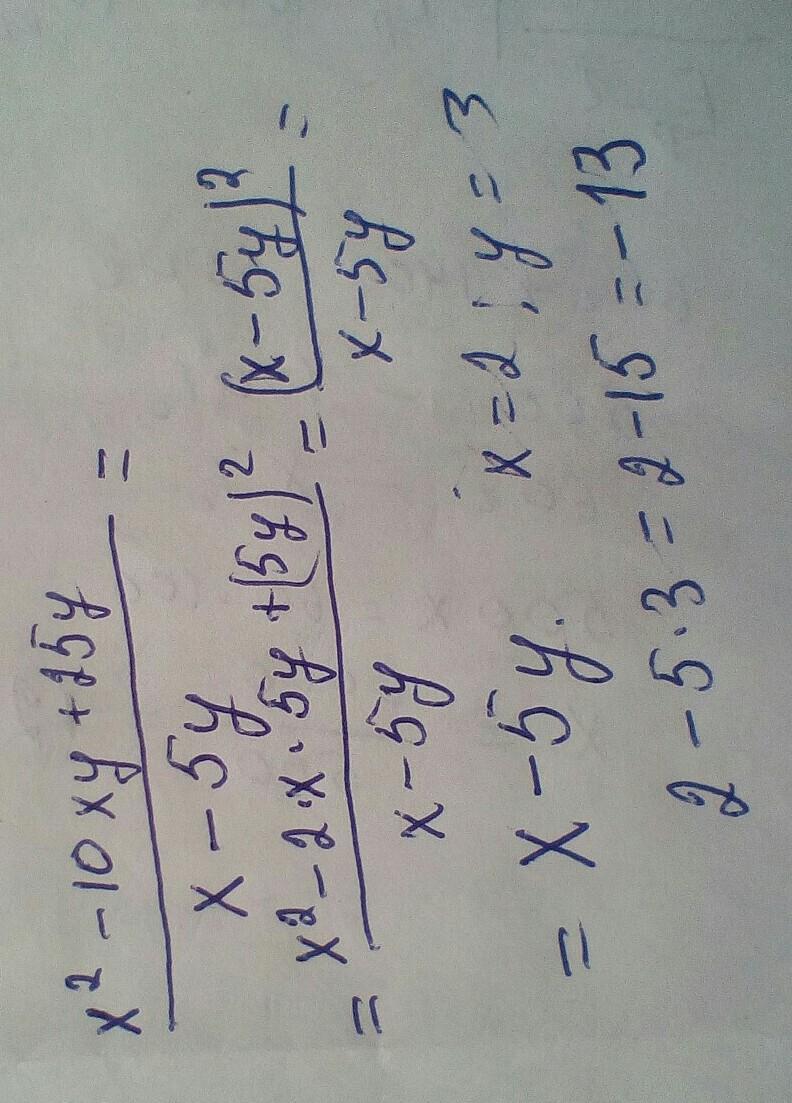 x² - 10xy + 25y / x - 5y =
= x² - 2·x·5y + (5y)² / x - 5y = (x - 5y)² / x - 5y =
= x - 5y. x = 2; y = 3
2 - 5·3 = 2 - 15 = -13